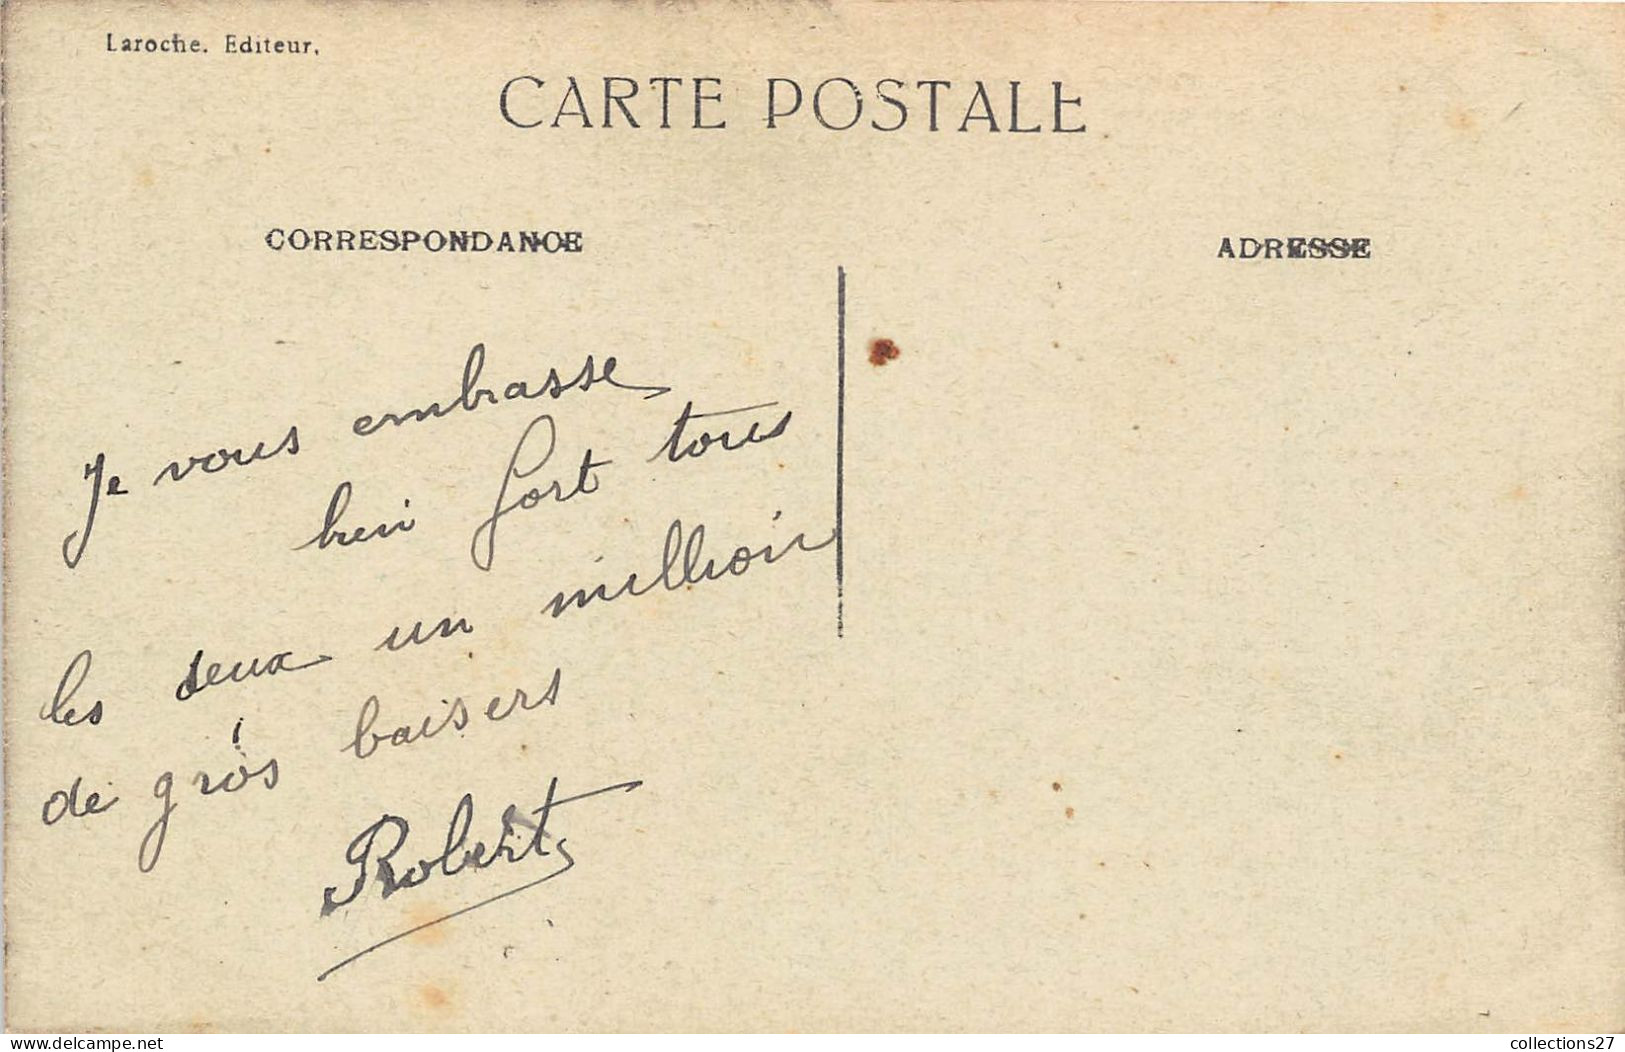 Laroche. Editeur.
CARTE POSTALE
CORRESPONDANCE
ADRESSE
Je vous embrasse
bien fort tous
les deux un million
de gros baisers
Robert
delcampe.net
collections27